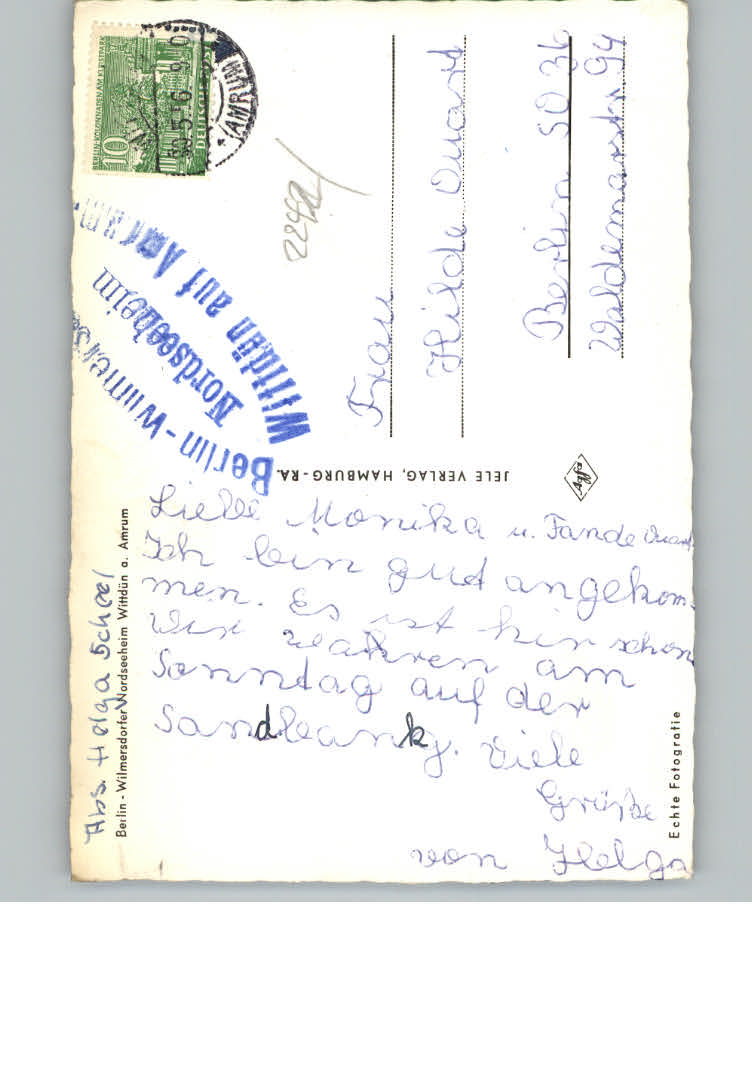 Abs. Helga Scheel
Berlin-Wilmersdorfer Nordseeheim Wittdün a. Amrum
Liebe Monika u. Tande Quart
Ich bin gud angekom-
men. Es ist hir schön
Wir wahren am
Sonntag auf der
Sandbank. Viele
Grüße
von Helga
Echte Fotografie
JELE VERLAG, HAMBURG-RA.
Agfa
Frau
Hilde Quart
Berlin SO 36
Waldemarstr 94
Berlin-Wilmers
Nordseeheim
Wittdün auf Amrum
(AMRUM)
10
DEUTSCHE